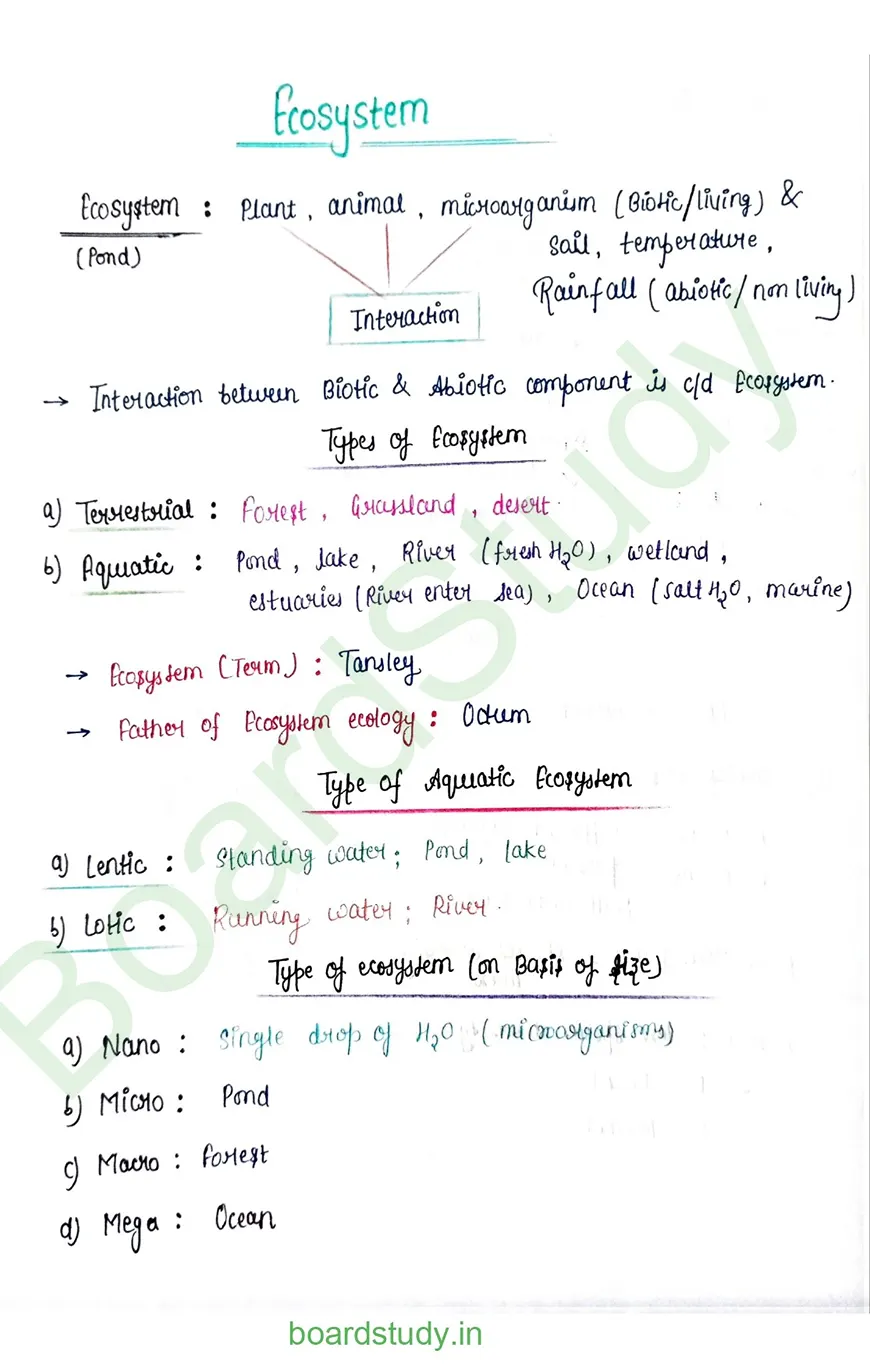 Ecosystem
Ecosystem : Plant, animal, microorganism (Biotic/living) &
(Pond)
Soil, temperature,
Rainfall (abiotic/non living)
Interaction
→ Interaction between Biotic & Abiotic component is c/d Ecosystem.
Types of Ecosystem
a) Terrestrial : Forest, Grassland, desert.
b) Aquatic : Pond, lake, River (fresh H₂O), wetland,
estuaries (River enter sea), Ocean (salt H₂O, marine)
→ Ecosystem (Term) : Tansley
→ Father of Ecosystem ecology : Odum
Type of Aquatic Ecosystem
a) Lentic : Standing water; Pond, lake
b) Lotic : Running water; River.
Type of ecosystem (on Basis of size)
a) Nano : Single drop of H₂O (microorganisms)
b) Micro : Pond
c) Macro : Forest
d) Mega : Ocean
BoardStudy
boardstudy.in